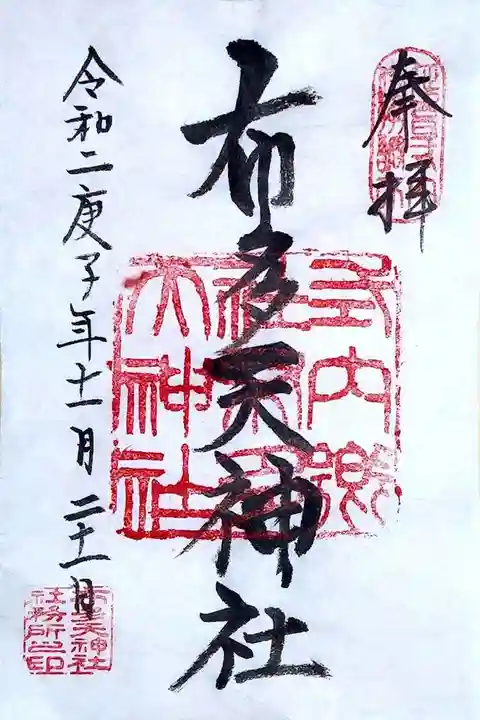 奉拝
布多天神社
式内郷
社
天神社
令和二庚子年十一月二十一日
布多天神社
社務所之印